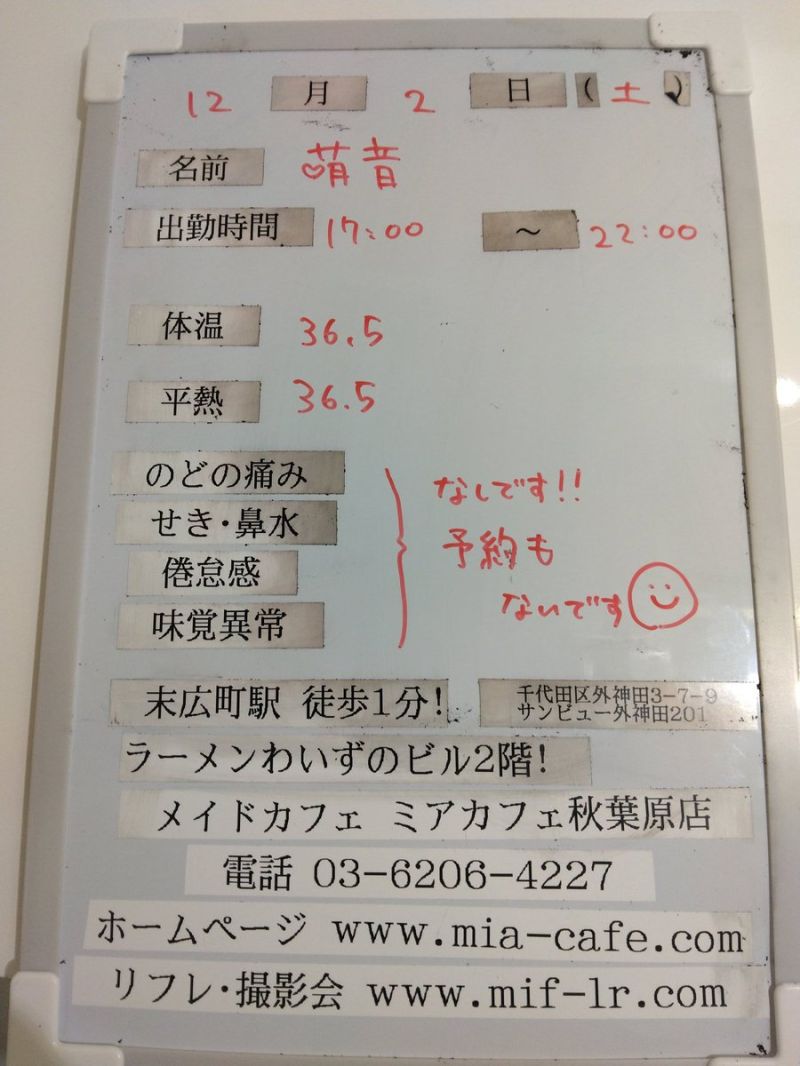 12 月 2 日 (土)
名前 萌音
出勤時間 17:00 ～ 22:00
体温 36.5
平熱 36.5
のどの痛み
せき・鼻水
倦怠感
味覚異常
なしです!!
予約も
ないです
末広町駅 徒歩1分!
千代田区外神田3-7-9
サンビュー外神田201
ラーメンわいずのビル2階!
メイドカフェ ミアカフェ秋葉原店
電話 03-6206-4227
ホームページ www.mia-cafe.com
リフレ・撮影会 www.mif-lr.com